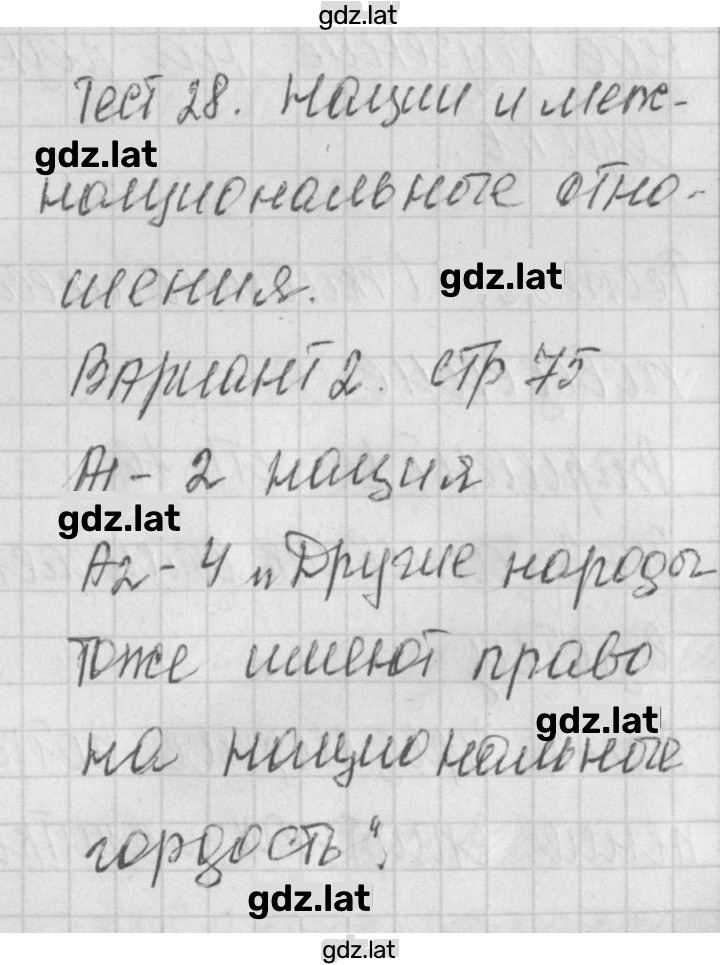 gdz.lat
Тест 28. Нации и меж-
gdz.lat
национальные отно-
шения.
gdz.lat
Вариант 2. стр 75
А1 - 2 нация
gdz.lat
А2 - 4 „Другие народы
тоже имеют право
gdz.lat
на национальные
гордость“.
gdz.lat
gdz.lat